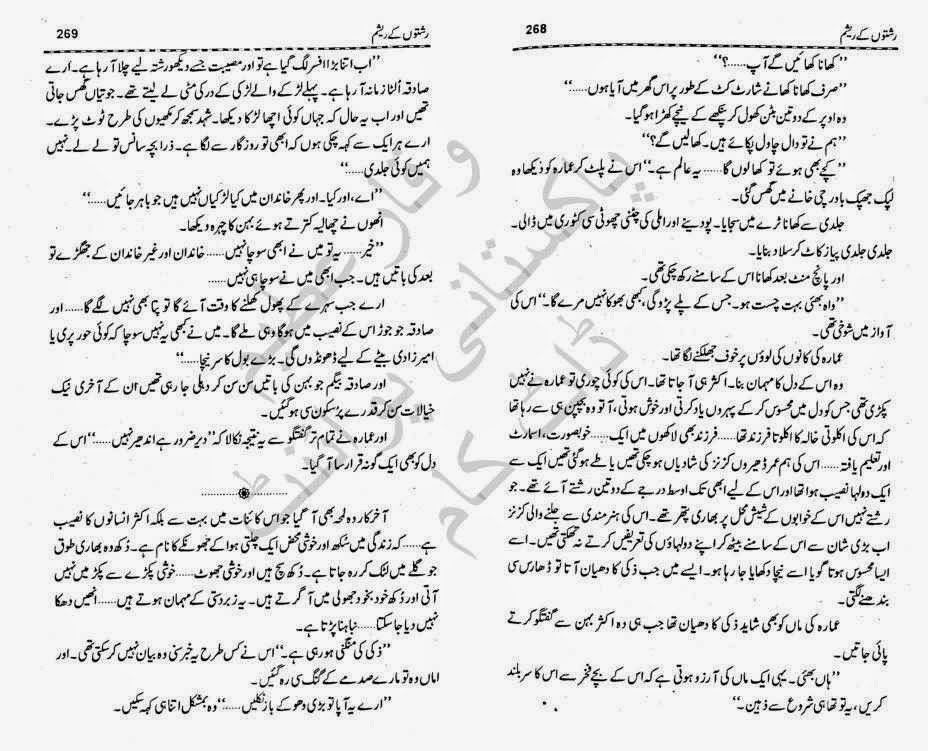 268
رشتوں کے ریشم
”کھانا کھائیں گے آپ......؟“
”صرف کھانا کھانے شارٹ کٹ کے طور پر اس گھر میں آیا ہوں......“
وہ اوپر کے دو تین بٹن کھول کر پنکھے کے نیچے کھڑا ہو گیا۔
”ہم نے تو دال چاول پکائے ہیں۔ کھا لیں گے؟“
”کچے بھی ہوئے تو کھا لوں گا...... یہ عالم ہے۔“ اس نے پلٹ کر عمارہ کو دیکھا وہ
لپک جھپک باورچی خانے میں گھس گئی۔
جلدی سے کھانا ٹرے میں سجایا۔ پودینے اور املی کی چٹنی چھوٹی سی کٹوری میں ڈالی۔
جلدی جلدی پیاز کاٹ کر سلاد بنایا۔
اور پانچ منٹ بعد کھانا اس کے سامنے رکھ چکی تھی۔
”واہ بھئی بہت چست ہو۔ جس کے پلے پڑو گی، کبھی بھوکا نہیں مرے گا۔“ اس کی
آواز میں شوخی تھی۔
عمارہ کی کانوں کی لوؤں پر خوف جھلکنے لگا تھا۔
وہ اس کے دل کا مہمان بنا۔ اکثر ہی آ جاتا تھا۔ اس کی کوئی چوری تو عمارہ نے نہیں
پکڑی تھی جس کو دل میں محسوس کر کے پہروں یاد کرتی اور خوش ہوتی، آ تو وہ بچپن ہی سے رہا تھا
کہ اس کی اکلوتی خالہ کا اکلوتا فرزند تھا...... فرزند بھی لاکھوں میں ایک...... خوبصورت، اسمارٹ
اور تعلیم یافتہ...... اس کی ہم عمر ڈھیروں کزنز کی شادیاں ہو چکی تھیں یا طے ہو گئی تھیں ایک سے
ایک دولہا نصیب ہوا تھا اور اس کے لیے ابھی تک اوسط درجے کے دو تین رشتے آئے تھے۔ جو
رشتے نہیں اس کے خوابوں کے شیش محل پر بھاری پتھر تھے۔ اس کی ہنرمندی سے جلنے والی کزنز
اب بڑی شان سے اس کے سامنے بیٹھ کر اپنے دولہاؤں کی تعریفیں کرتے نہ تھکتی تھیں۔ اسے
ایسا محسوس ہوتا گویا اسے نیچا دکھایا جا رہا ہو۔ ایسے میں جب ذکی کا دھیان آتا تو ڈھارس سی
بندھنے لگتی۔
عمارہ کی ماں کو بھی شاید ذکی کا دھیان تھا جب ہی وہ اکثر بہن سے گفتگو کرتے
پائی جاتیں۔
”ہاں بھئی۔ یہی ایک ماں کی آرزو ہوتی ہے کہ اس کے بچے فخر سے اس کا سر بلند
کریں، یہ تو تھا ہی شروع سے ذہین۔“
269
رشتوں کے ریشم
”اب اتنا بڑا افسر لگ گیا ہے تو اور مصیبت جسے دیکھو رشتہ لیے چلا آ رہا ہے۔ ارے
صادقہ اُلٹا زمانہ آ رہا ہے۔ پہلے لڑکے والے لڑکی کے در کی مٹی لے لیتے تھے۔ جوتیاں گھس جاتی
تھیں اور اب یہ حال کہ جہاں کوئی اچھا لڑکا دیکھا۔ شہد سمجھ کر مکھیوں کی طرح ٹوٹ پڑے۔
ارے ہر ایک سے کہہ چکی ہوں کہ ابھی تو روزگار سے لگا ہے۔ ذرا بچہ سانس تو لے لے۔ نہیں
ہمیں کوئی جلدی......“
”اے، اور کیا۔ اور پھر خاندان میں کیا لڑکیاں نہیں ہیں جو باہر جائیں......“
انھوں نے چھالیہ کترتے ہوئے بہن کا چہرہ دیکھا۔
”خیر...... یہ تو میں نے ابھی سوچا نہیں...... خاندان اور غیر خاندان کے جھگڑے تو
بعد کی باتیں ہیں۔ جب ابھی میں نے سوچا ہی نہیں......
ارے جب سہرے کے پھول کھلنے کا وقت آئے گا تو پتا بھی نہیں لگے گا...... اور
صادقہ جو جوڑ اس کے نصیب میں ہو گا وہی ملے گا۔ میں نے کبھی یہ نہیں سوچا کہ کوئی حور پری یا
امیر زادی بیٹے کے لیے ڈھونڈوں گی۔ بڑے بول کا سر نیچا......“
اور صادقہ بیگم جو بہن کی باتیں سن سن کر دہلی جا رہی تھیں ان کے آخری نیک
خیالات سن کر قدرے پرسکون سی ہو گئیں۔
اور عمارہ نے تمام تر گفتگو سے یہ نتیجہ نکالا کہ ”دیر ضرور ہے اندھیر نہیں......“ اس کے
دل کو بھی ایک گونہ قرار سا آ گیا۔
آخر کار وہ لمحہ بھی آ گیا جو اس کائنات میں بہت سے بلکہ اکثر انسانوں کا نصیب
ہے...... کہ زندگی میں سُکھ اور خوشی محض ایک چلتی ہوا کے جھونکے کا نام ہے۔ دُکھ وہ بھاری طوق
جو گلے میں لٹک کر رہ جاتا ہے۔ دُکھ سچ ہیں اور خوشی جھوٹ...... خوشی پکڑے سے پکڑ میں نہیں
آتی اور دُکھ خود بخود جھولی میں آ گرتے ہیں۔ یہ زبردستی کے مہمان ہوتے ہیں...... انھیں دھکا
نہیں دیا جا سکتا...... نباہنا پڑتا ہے۔
”ذکی کی منگنی ہو رہی ہے۔“ اس نے کس طرح یہ خبر سنی وہ بیان نہیں کر سکتی تھی۔ اور
اماں وہ تو مارے صدمے کے گنگ سی رہ گئیں۔
”ارے یہ آپا تو بڑی دھوکے باز نکلیں......“ وہ بمشکل اتنا ہی کہہ سکیں۔
وقار عظیم
پاکستانی پوائنٹ
ڈاٹ کام